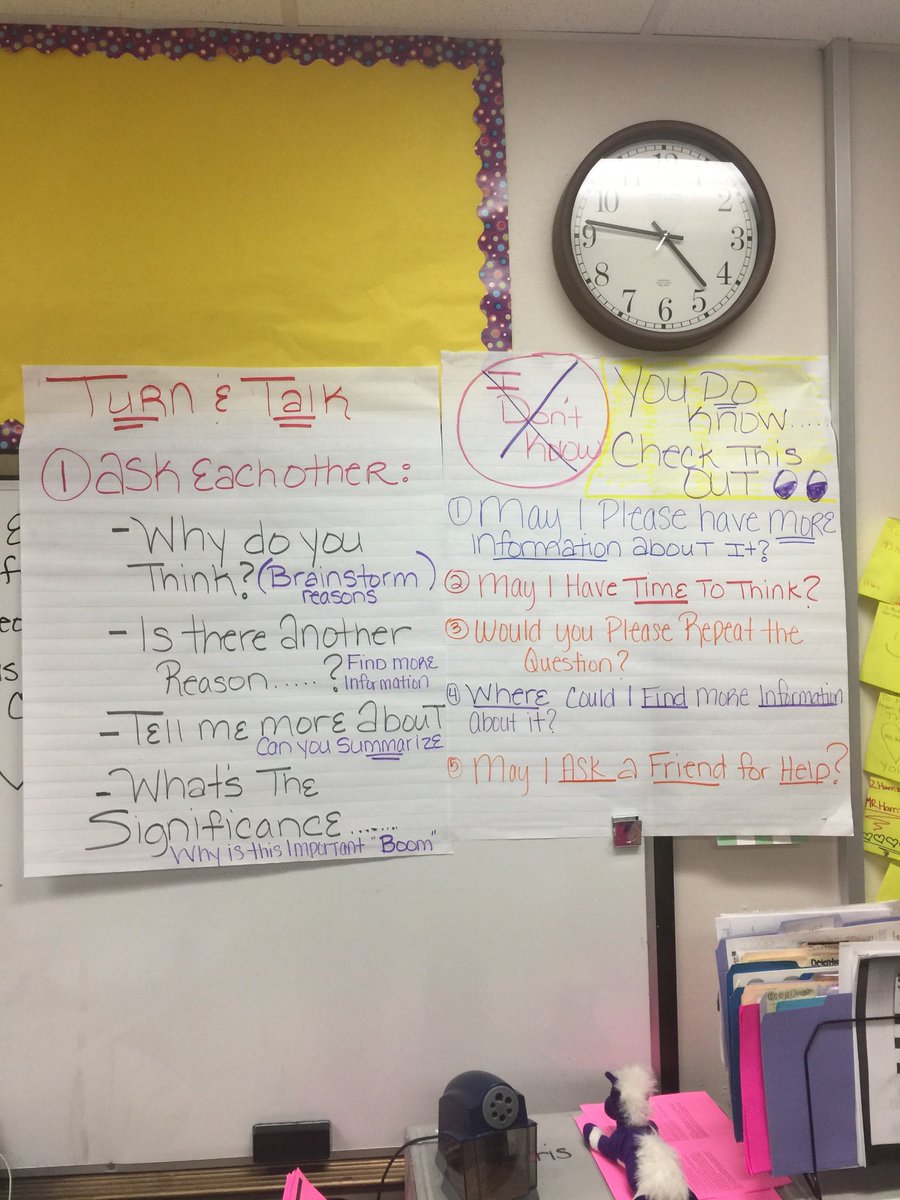 Turn & Talk
① Ask Each other:
- Why do you
Think? (Brainstorm)
reasons
- Is there another
Reason.....?
Find more
Information
- Tell me more about
Can you Summarize
- What's The
Significance......
Why is this Important "Boom"
I
Don't
Know
You Do
Know.....
Check This
Out
① May I Please have more
Information about It?
② May I Have Time To Think?
③ Would you Please Repeat the
Question?
④ Where Could I Find more Information
about it?
⑤ May I Ask a Friend for Help?
12
2
3
4
5
6
7
8
9
10
Mr Harris